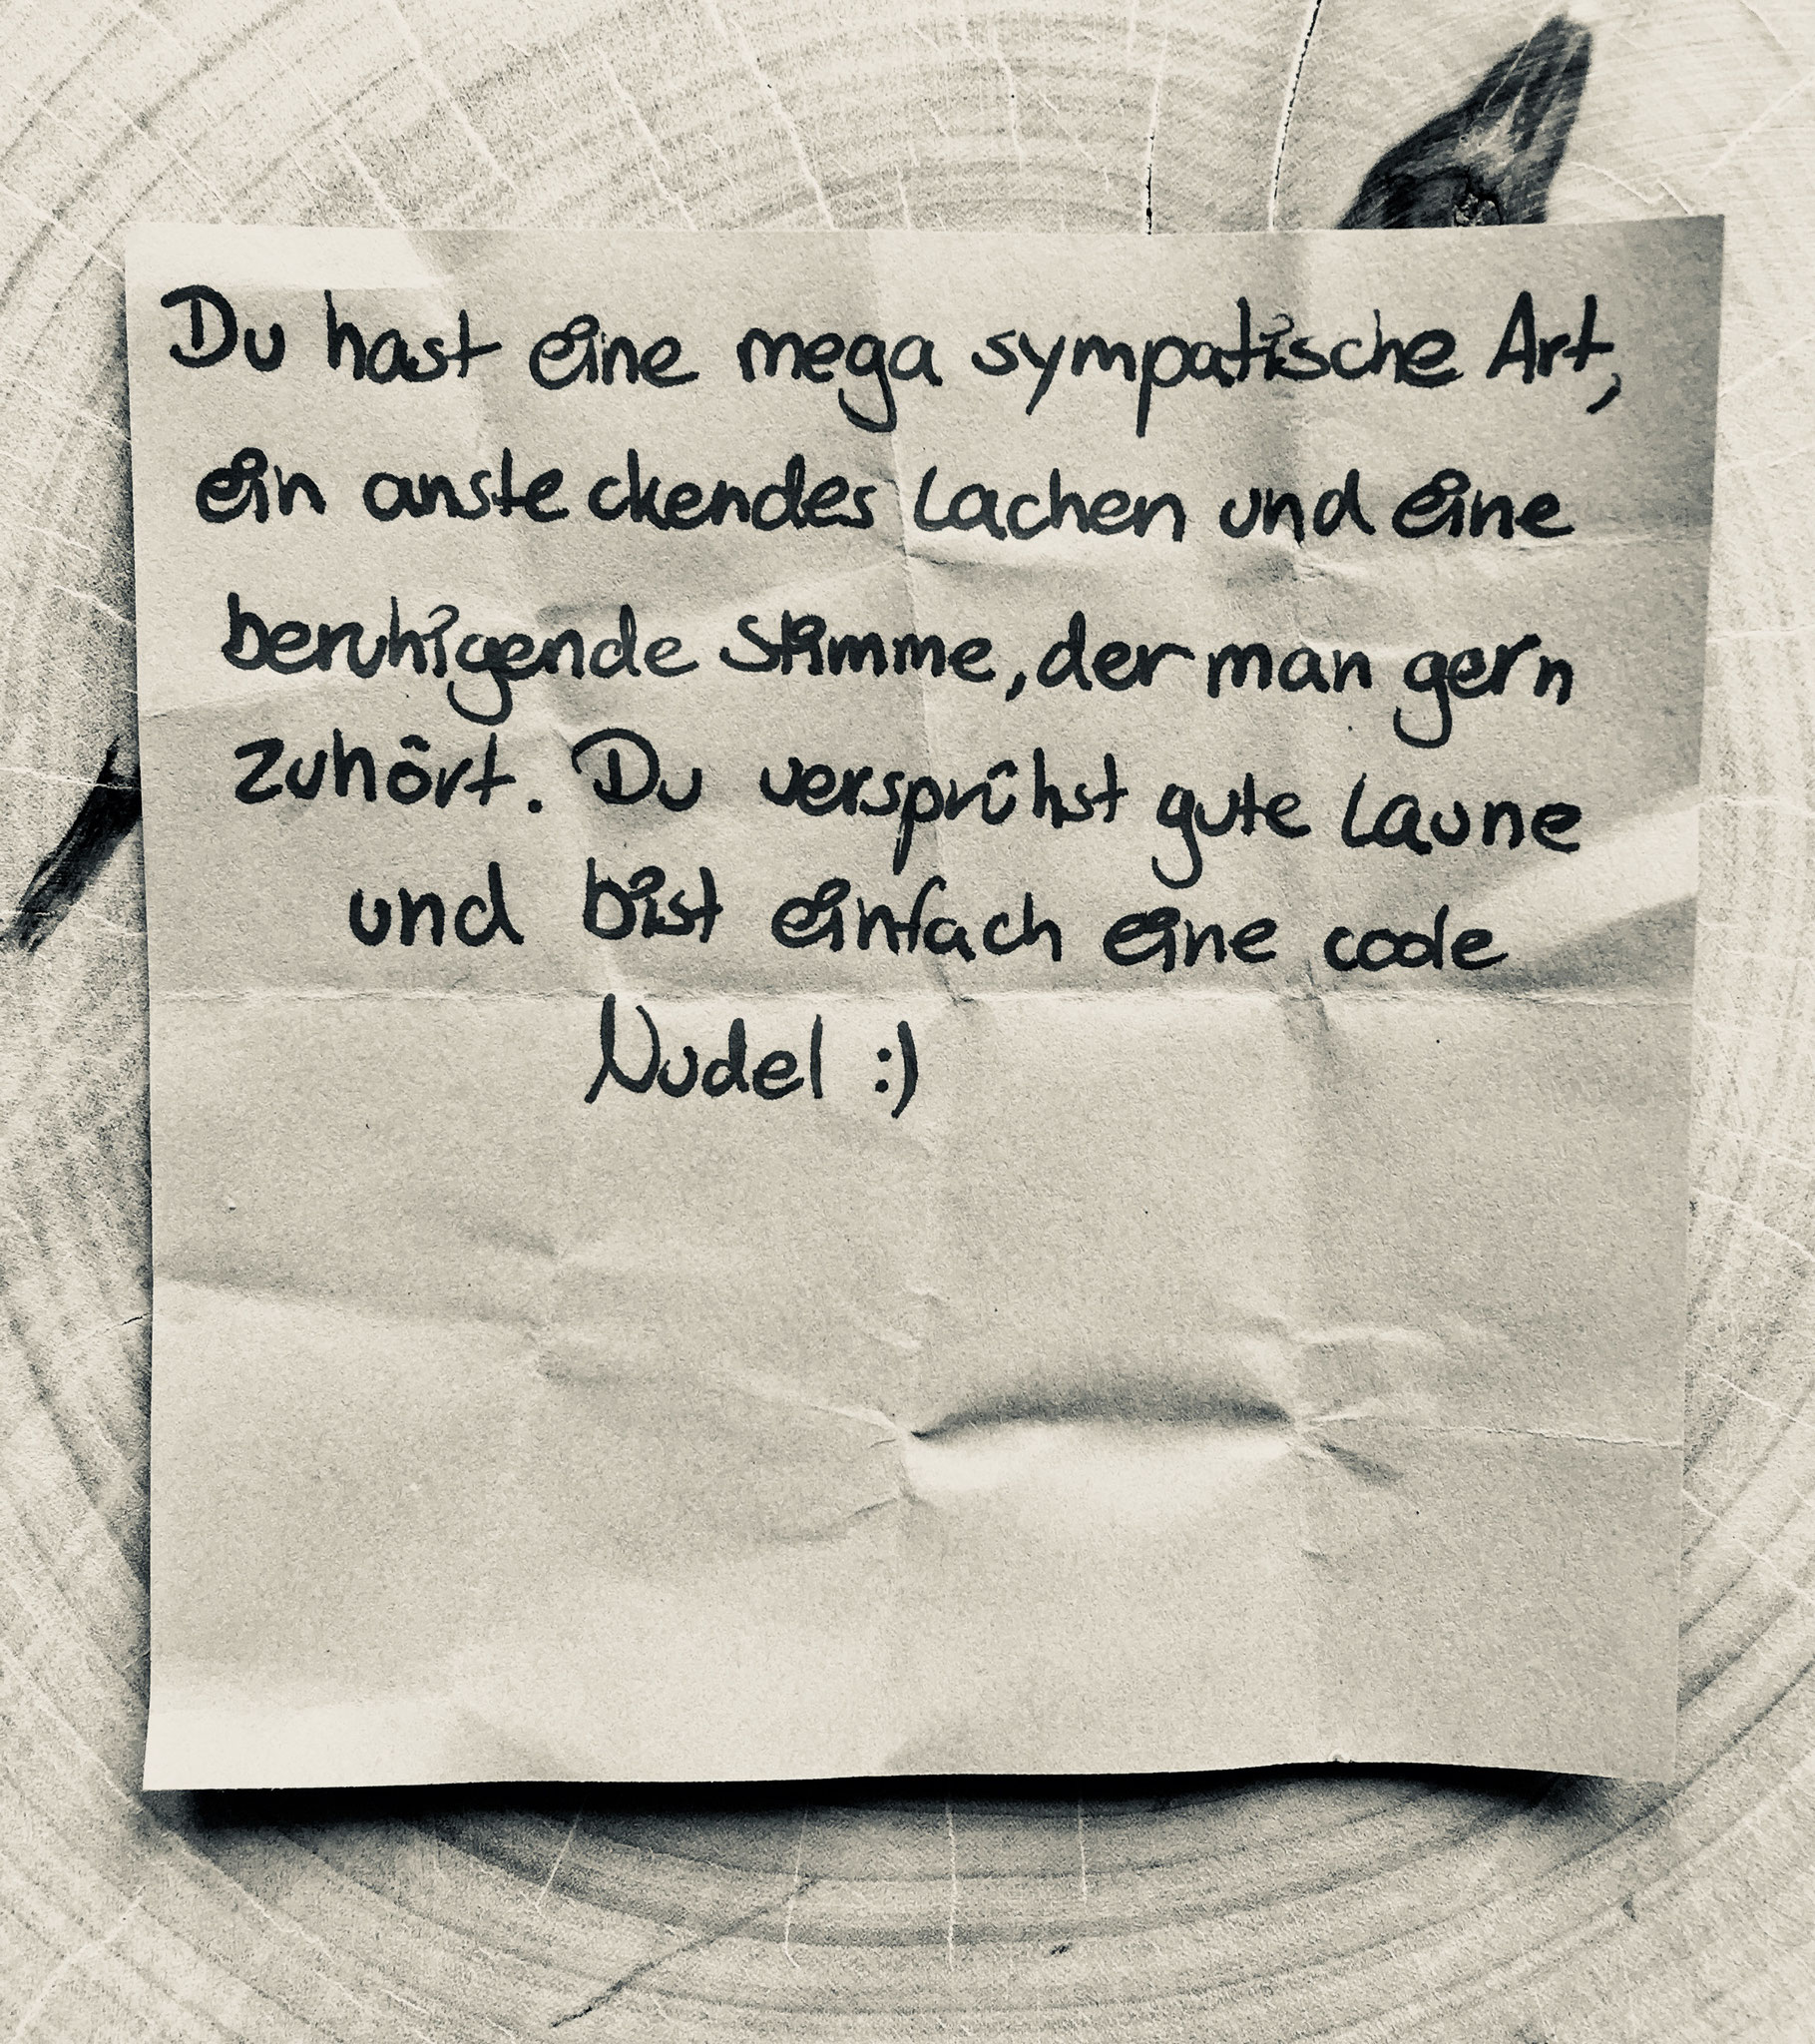 Du hast eine mega sympatische Art,
ein ansteckendes Lachen und eine
beruhigende Stimme, der man gern
zuhört. Du versprühst gute Laune
und bist einfach eine coole
Nudel :)